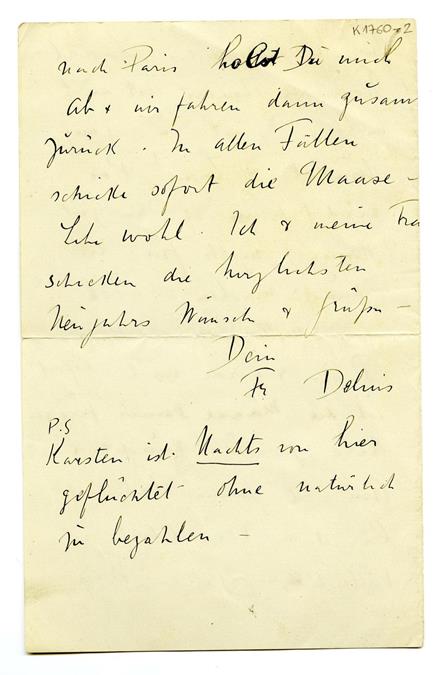 K 1760-2
nach Paris holst Du mich
ab & wir fahren dann zusam
zurück. In allen Fällen
schicke sofort die Maase -
Lebe wohl. Ich & meine Fra
schicken die herzlichsten
Neujahrs Wünsche & Grüße -
Dein
Fr Delius
P.S
Karsten ist Nachts von hier
geflüchtet ohne natürlich
zu bezahlen -